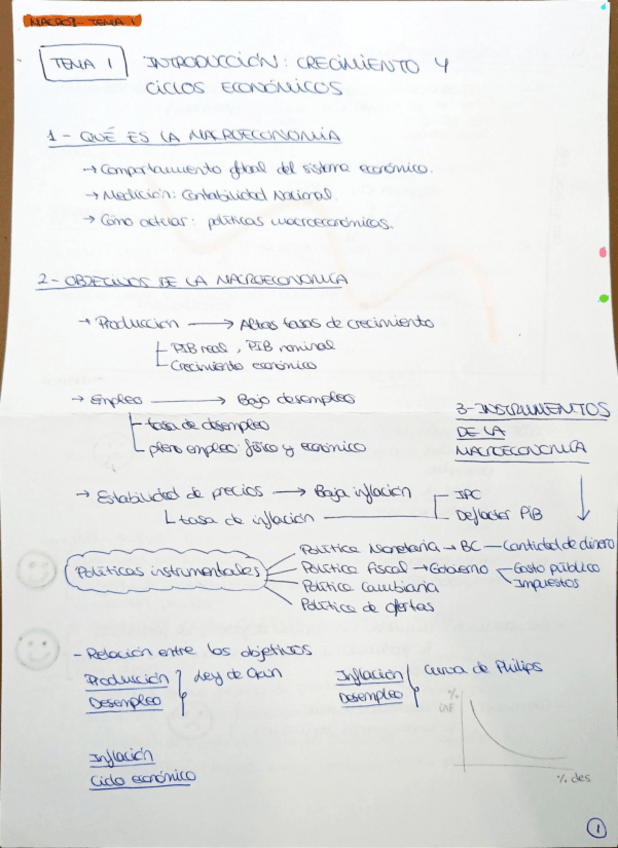 MACRO I - TEMA 1
TEMA 1 INTRODUCCIÓN: CRECIMIENTO Y
CICLOS ECONÓMICOS
1 - QUÉ ES LA MACROECONOMÍA
→ Comportamiento global del sistema económico.
→ Medición: Contabilidad Nacional.
→ Cómo actuar: políticas macroeconómicas.
2 - OBJETIVOS DE LA MACROECONOMÍA
→ Producción → Altas tasas de crecimiento
PIB real, PIB nominal
Crecimiento económico
→ Empleo → Bajo desempleo
tasa de desempleo
pleno empleo: físico y económico
→ Estabilidad de precios → Baja inflación
tasa de inflación
IPC
Deflactor PIB
3 - INSTRUMENTOS
DE LA
MACROECONOMÍA
Políticas instrumentales
Política Monetaria → BC — Cantidad de dinero
Política Fiscal → Gobierno
Gasto público
Impuestos
Política Cambiaria
Política de ofertas
- Relación entre los objetivos
Producción
Desempleo
Ley de Okun
Inflación
Desempleo
Curva de Philips
%
INF
% des
Inflación
Ciclo económico
1